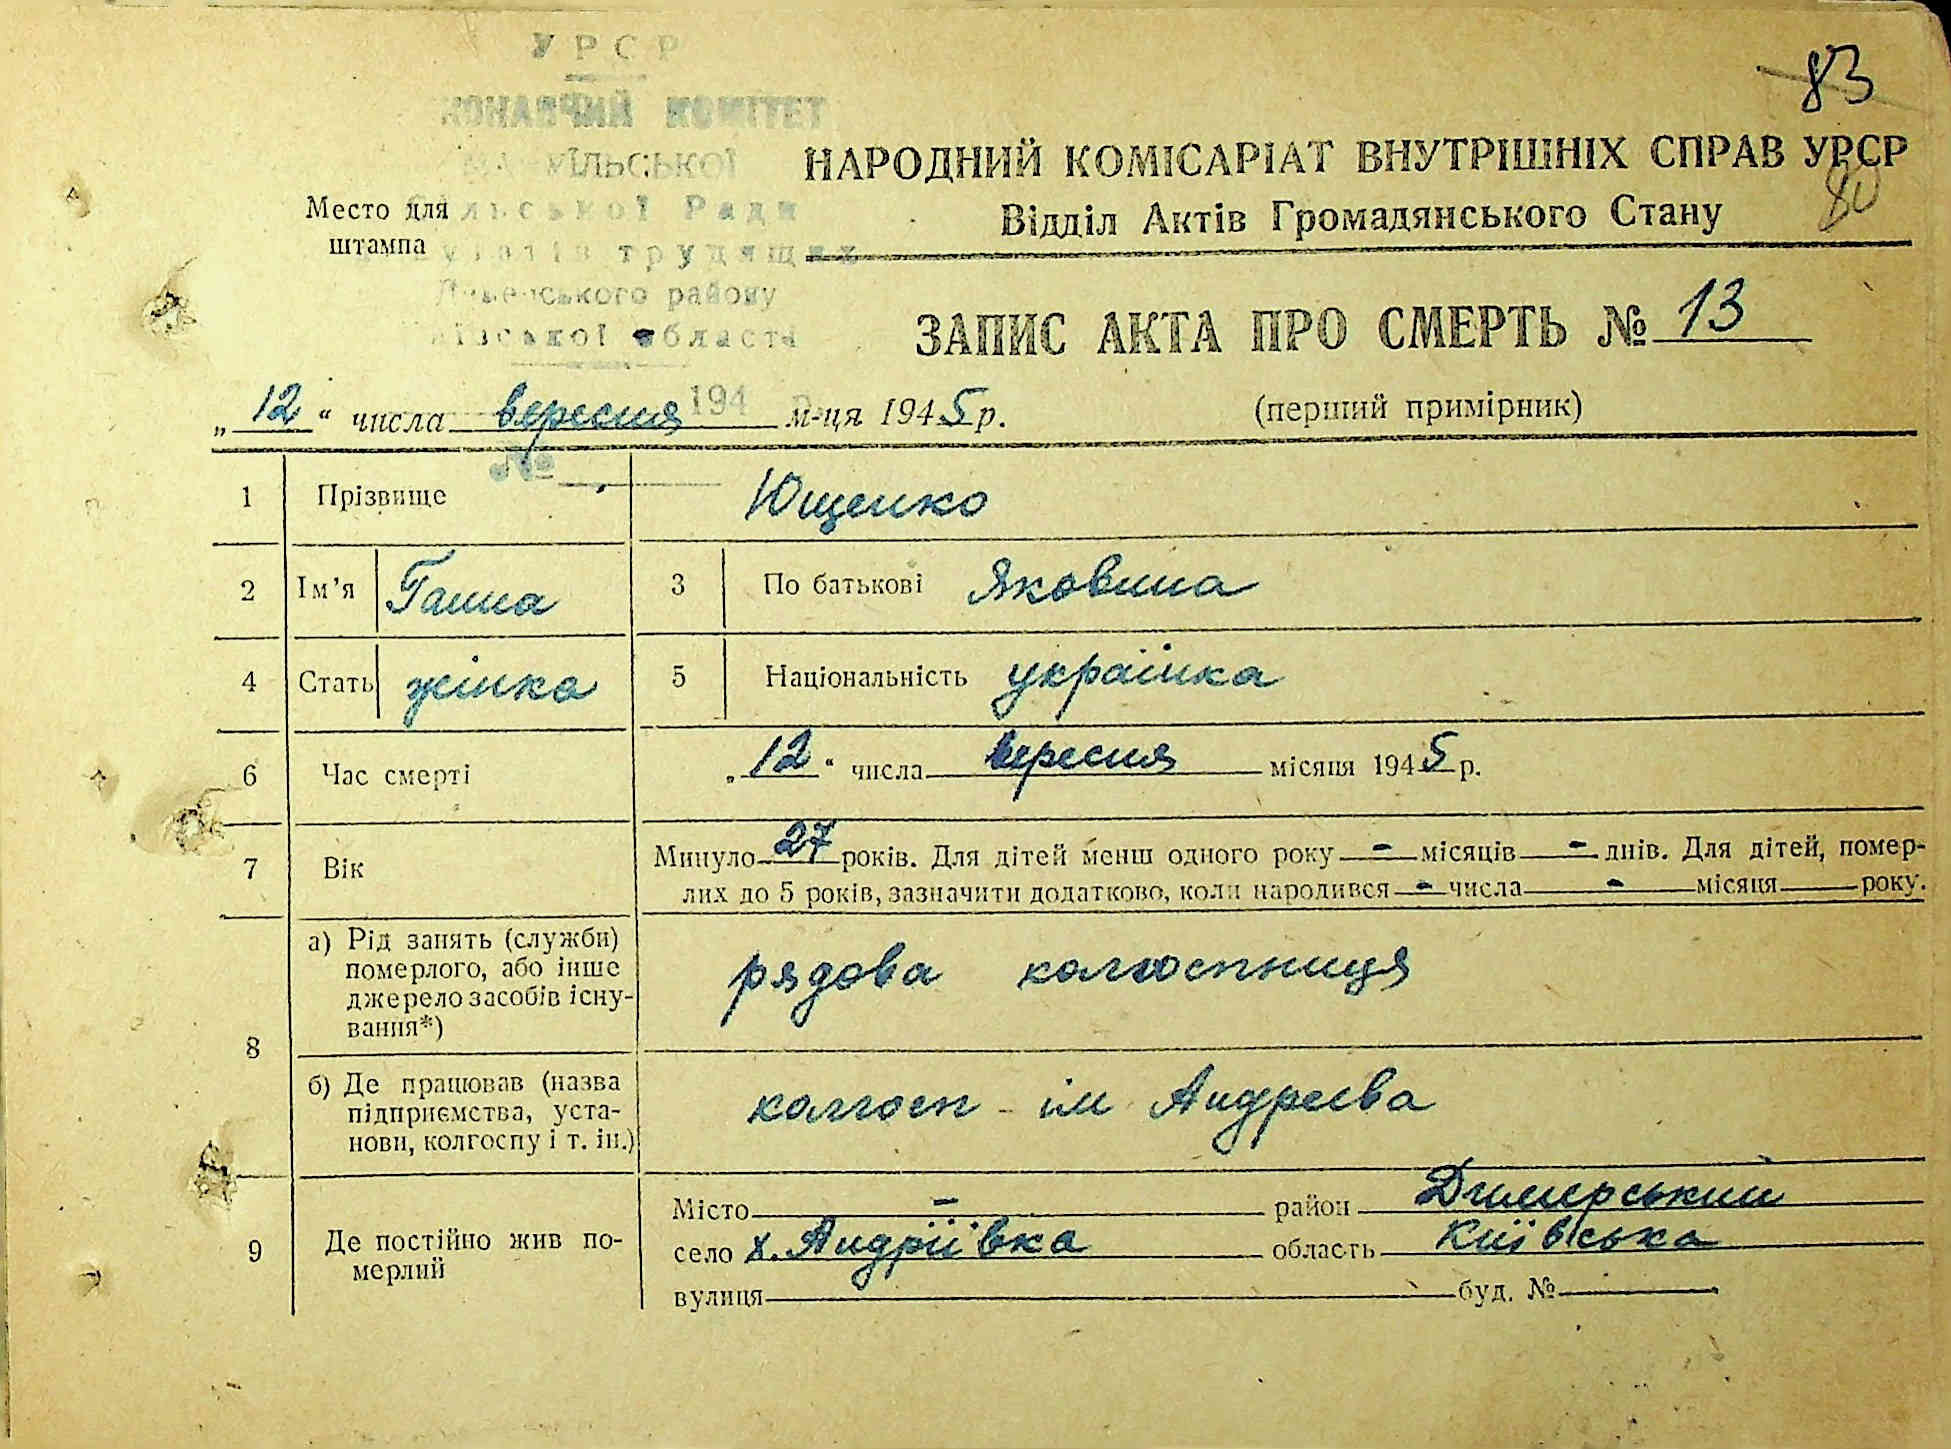 УРСР
83
КОМІТЕТ
НАРОДНИЙ КОМІСАРІАТ ВНУТРІШНІХ СПРАВ УРСР
80
Место для
штампа
Ради
трудящих
району
області
Відділ Актів Громадянського Стану
ЗАПИС АКТА ПРО СМЕРТЬ № 13
(перший примірник)
„12“ числа вересня м-ця 1945 р.
194
№
1 Прізвище Ющенко
2 Ім’я Ганна 3 По батькові Яковина
4 Стать жінка 5 Національність українка
6 Час смерті „12“ числа вересня місяця 1945 р.
7 Вік Минуло 27 років. Для дітей менш одного року - місяців - днів. Для дітей, помер-
лих до 5 років, зазначити додатково, коли народився - числа - місяця року.
8 а) Рід занять (служби)
померлого, або інше
джерело засобів існу-
вання*)
рядова колгоспниця
б) Де працював (назва
підприємства, уста-
нови, колгоспу і т. ін.)
колгосп ім Андреєва
9 Де постійно жив по-
мерлий
Місто - район Димерський
село х. Андріївка область Київська
вулиця буд. №